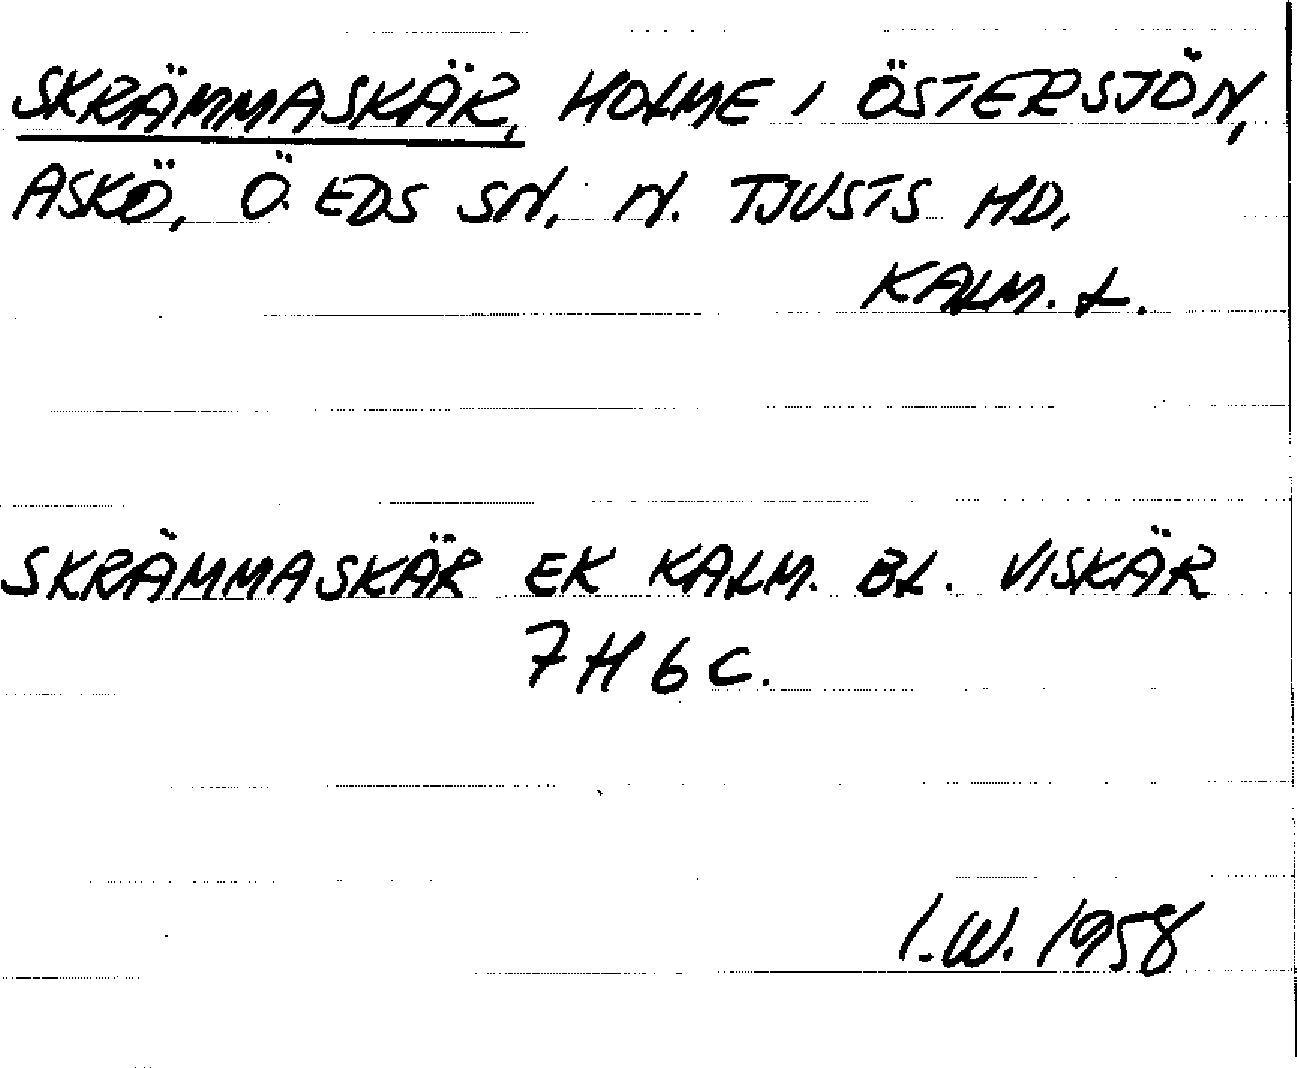 SKRÄMMASKÄR, HOLME I ÖSTERSJÖN,
ASKÖ, Ö. EDS SN, N. TJUSTS HD,
KALM. L.
SKRÄMMASKÄR EK KALM. BL. VISKÄR
7H 6C.
I.W. 1958